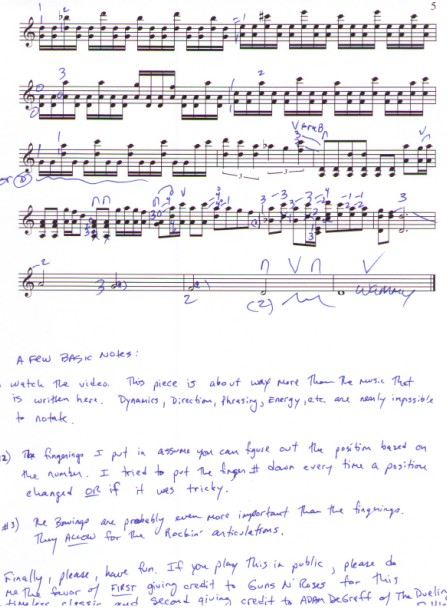 5
A FEW BASIC NOTES:
watch the video. This piece is about way more than the music that
is written here. Dynamics, Direction, Phrasing, Energy, etc are nearly impossible
to notate.
2) The fingerings I put in assume you can figure out the position based on
the number. I tried to put the finger # down every time a position
changed OR if it was tricky.
#3) The Bowings are probably even more important than the fingerings.
They ALLOW for the Rockin' articulations.
Finally, please, have fun. If you play this in public, please do
me the favor of FIRST giving credit to GUNS N' ROSES for this
timeless classic and second giving credit to ADAM DeGraff of The Dueling